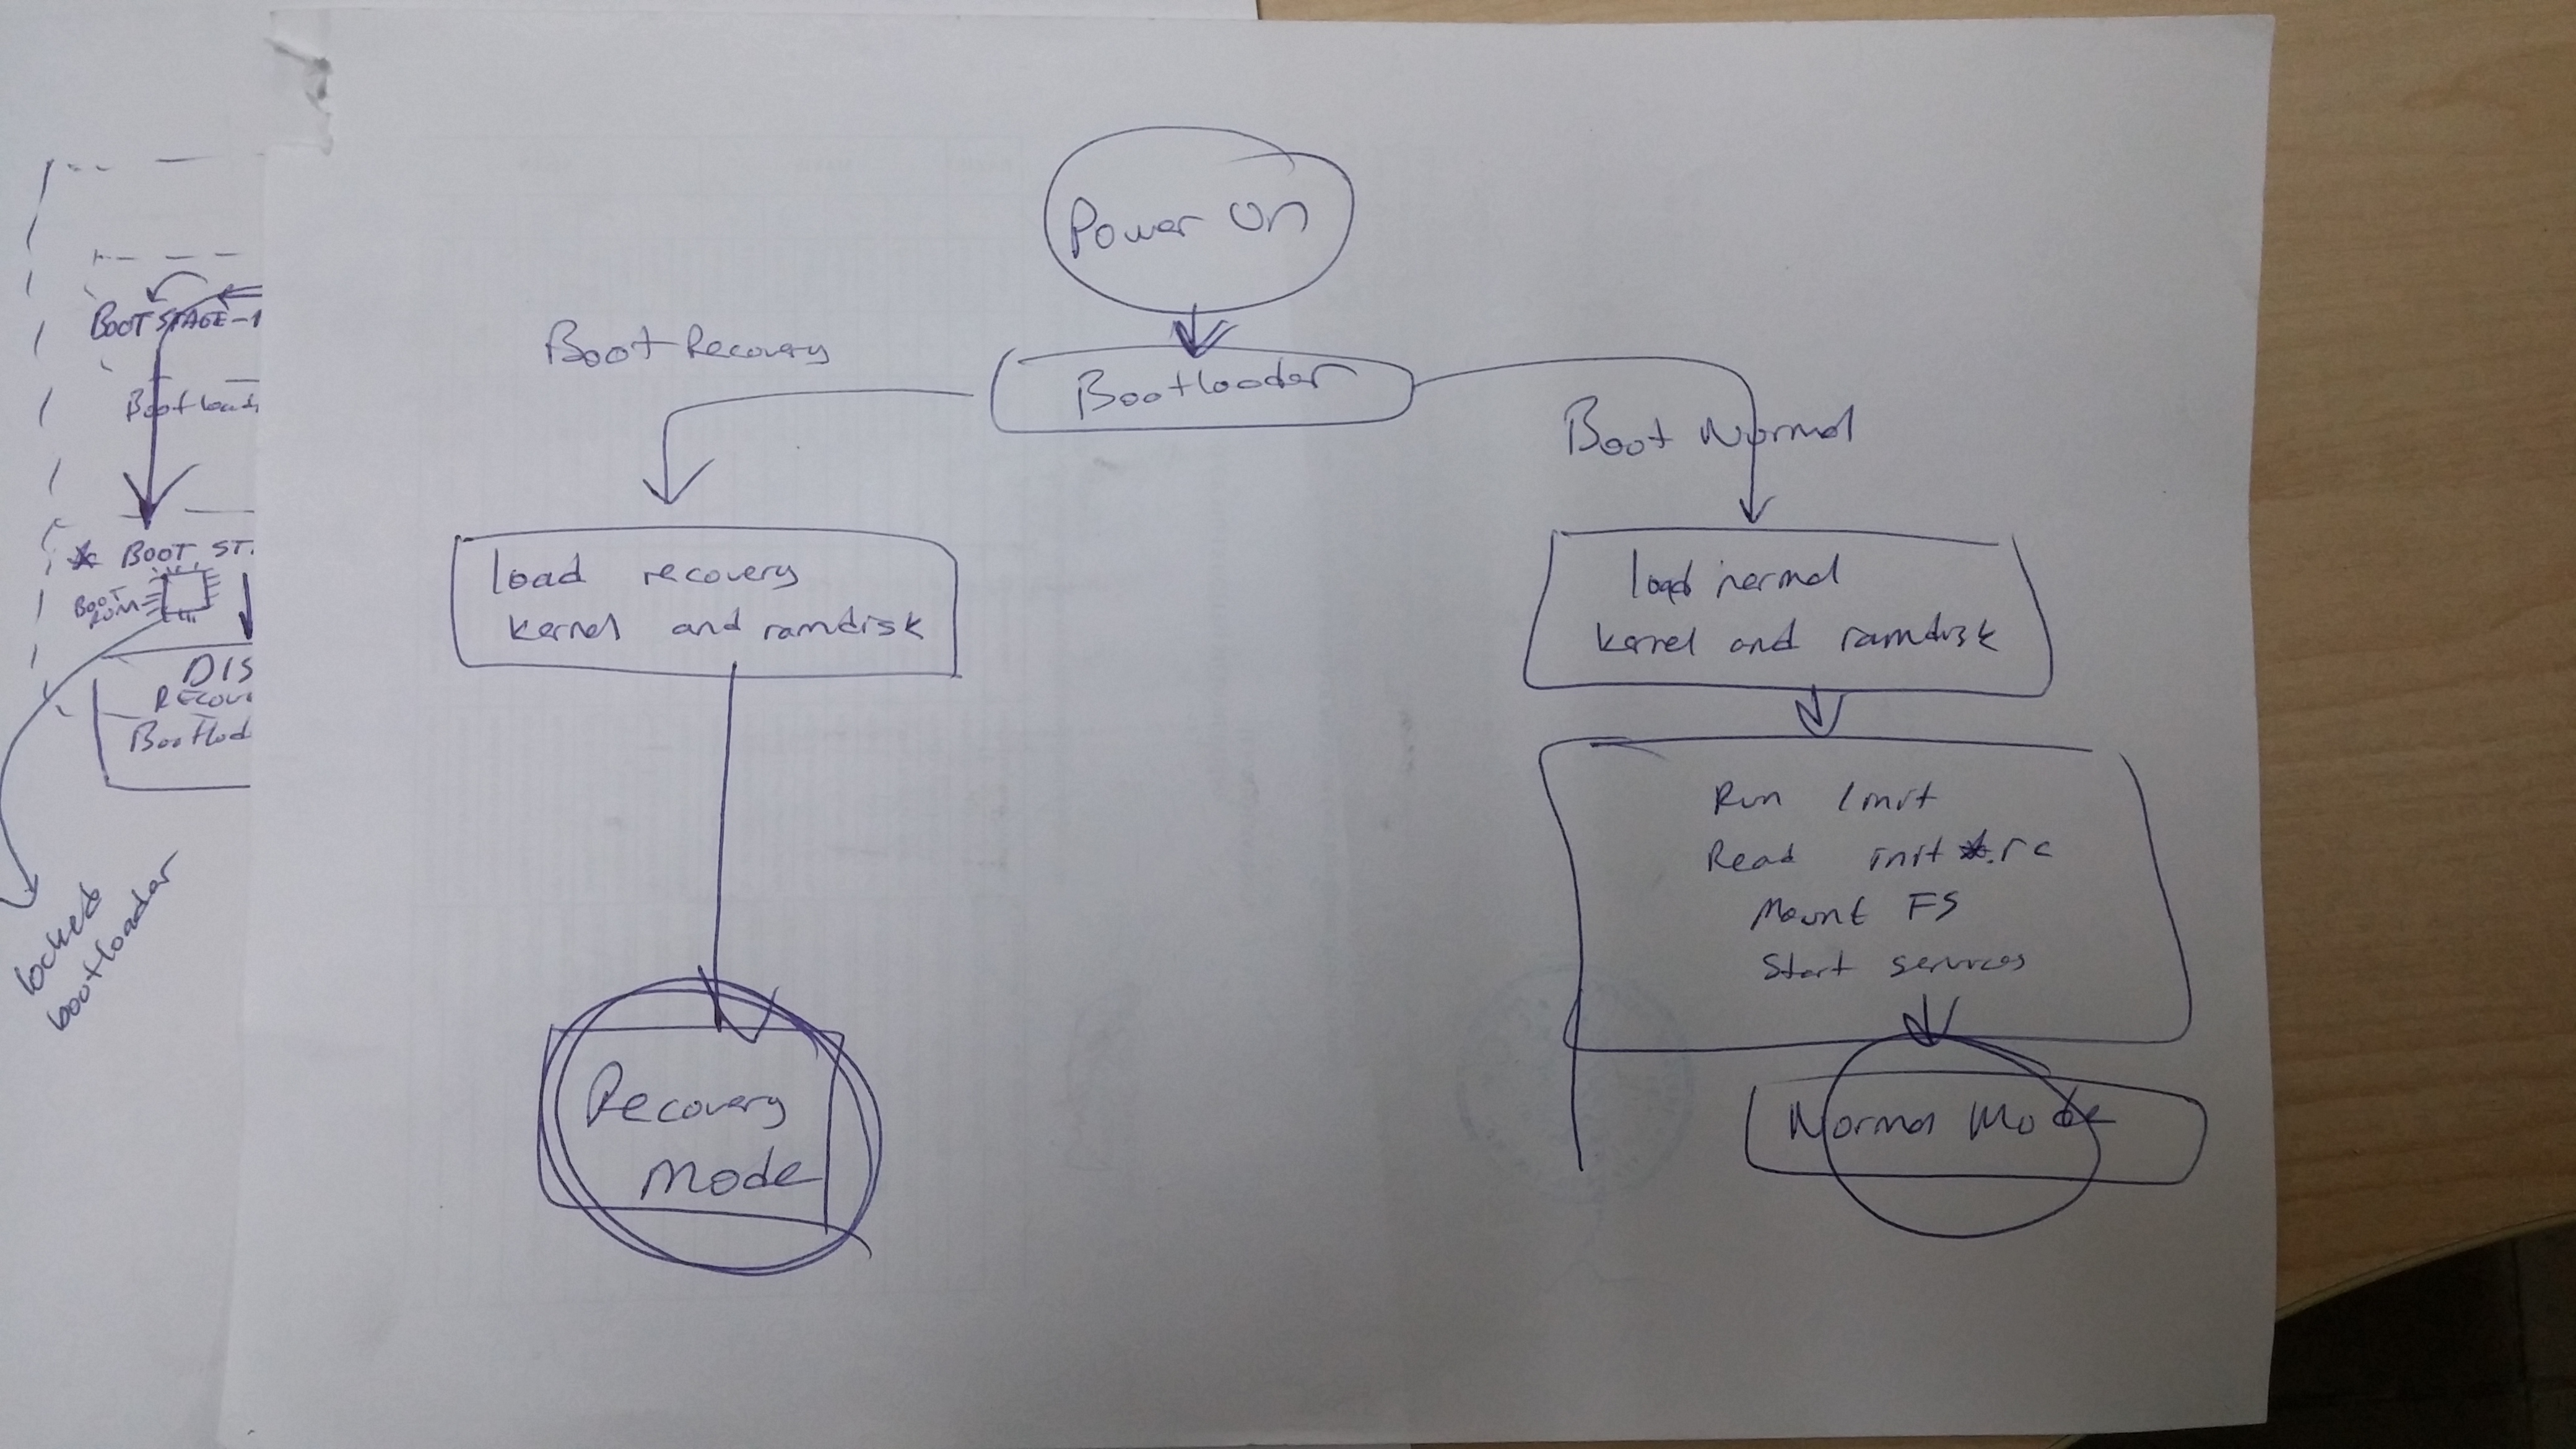 BOOT STAGE-1
* BOOT ST.
BOOT
ROM
DIS
Recov
Bootload
locked
bootloader
Power On
Bootloader
Boot Recovery
load recovery
kernel and ramdisk
Recovery
Mode
Boot Normal
load normal
kernel and ramdisk
Run init
Read init*.rc
Mount FS
Start services
Normal Mode